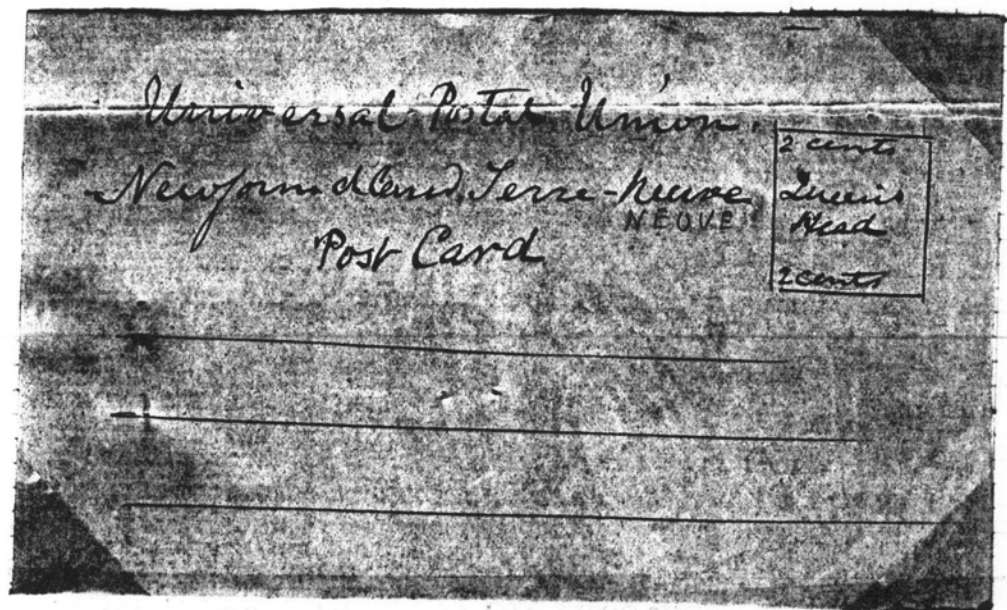 Universal Postal Union.
Newfoundland. Terre-Neuve
NEUVE
Post Card
2 cents
Queen's
Head
2 cents